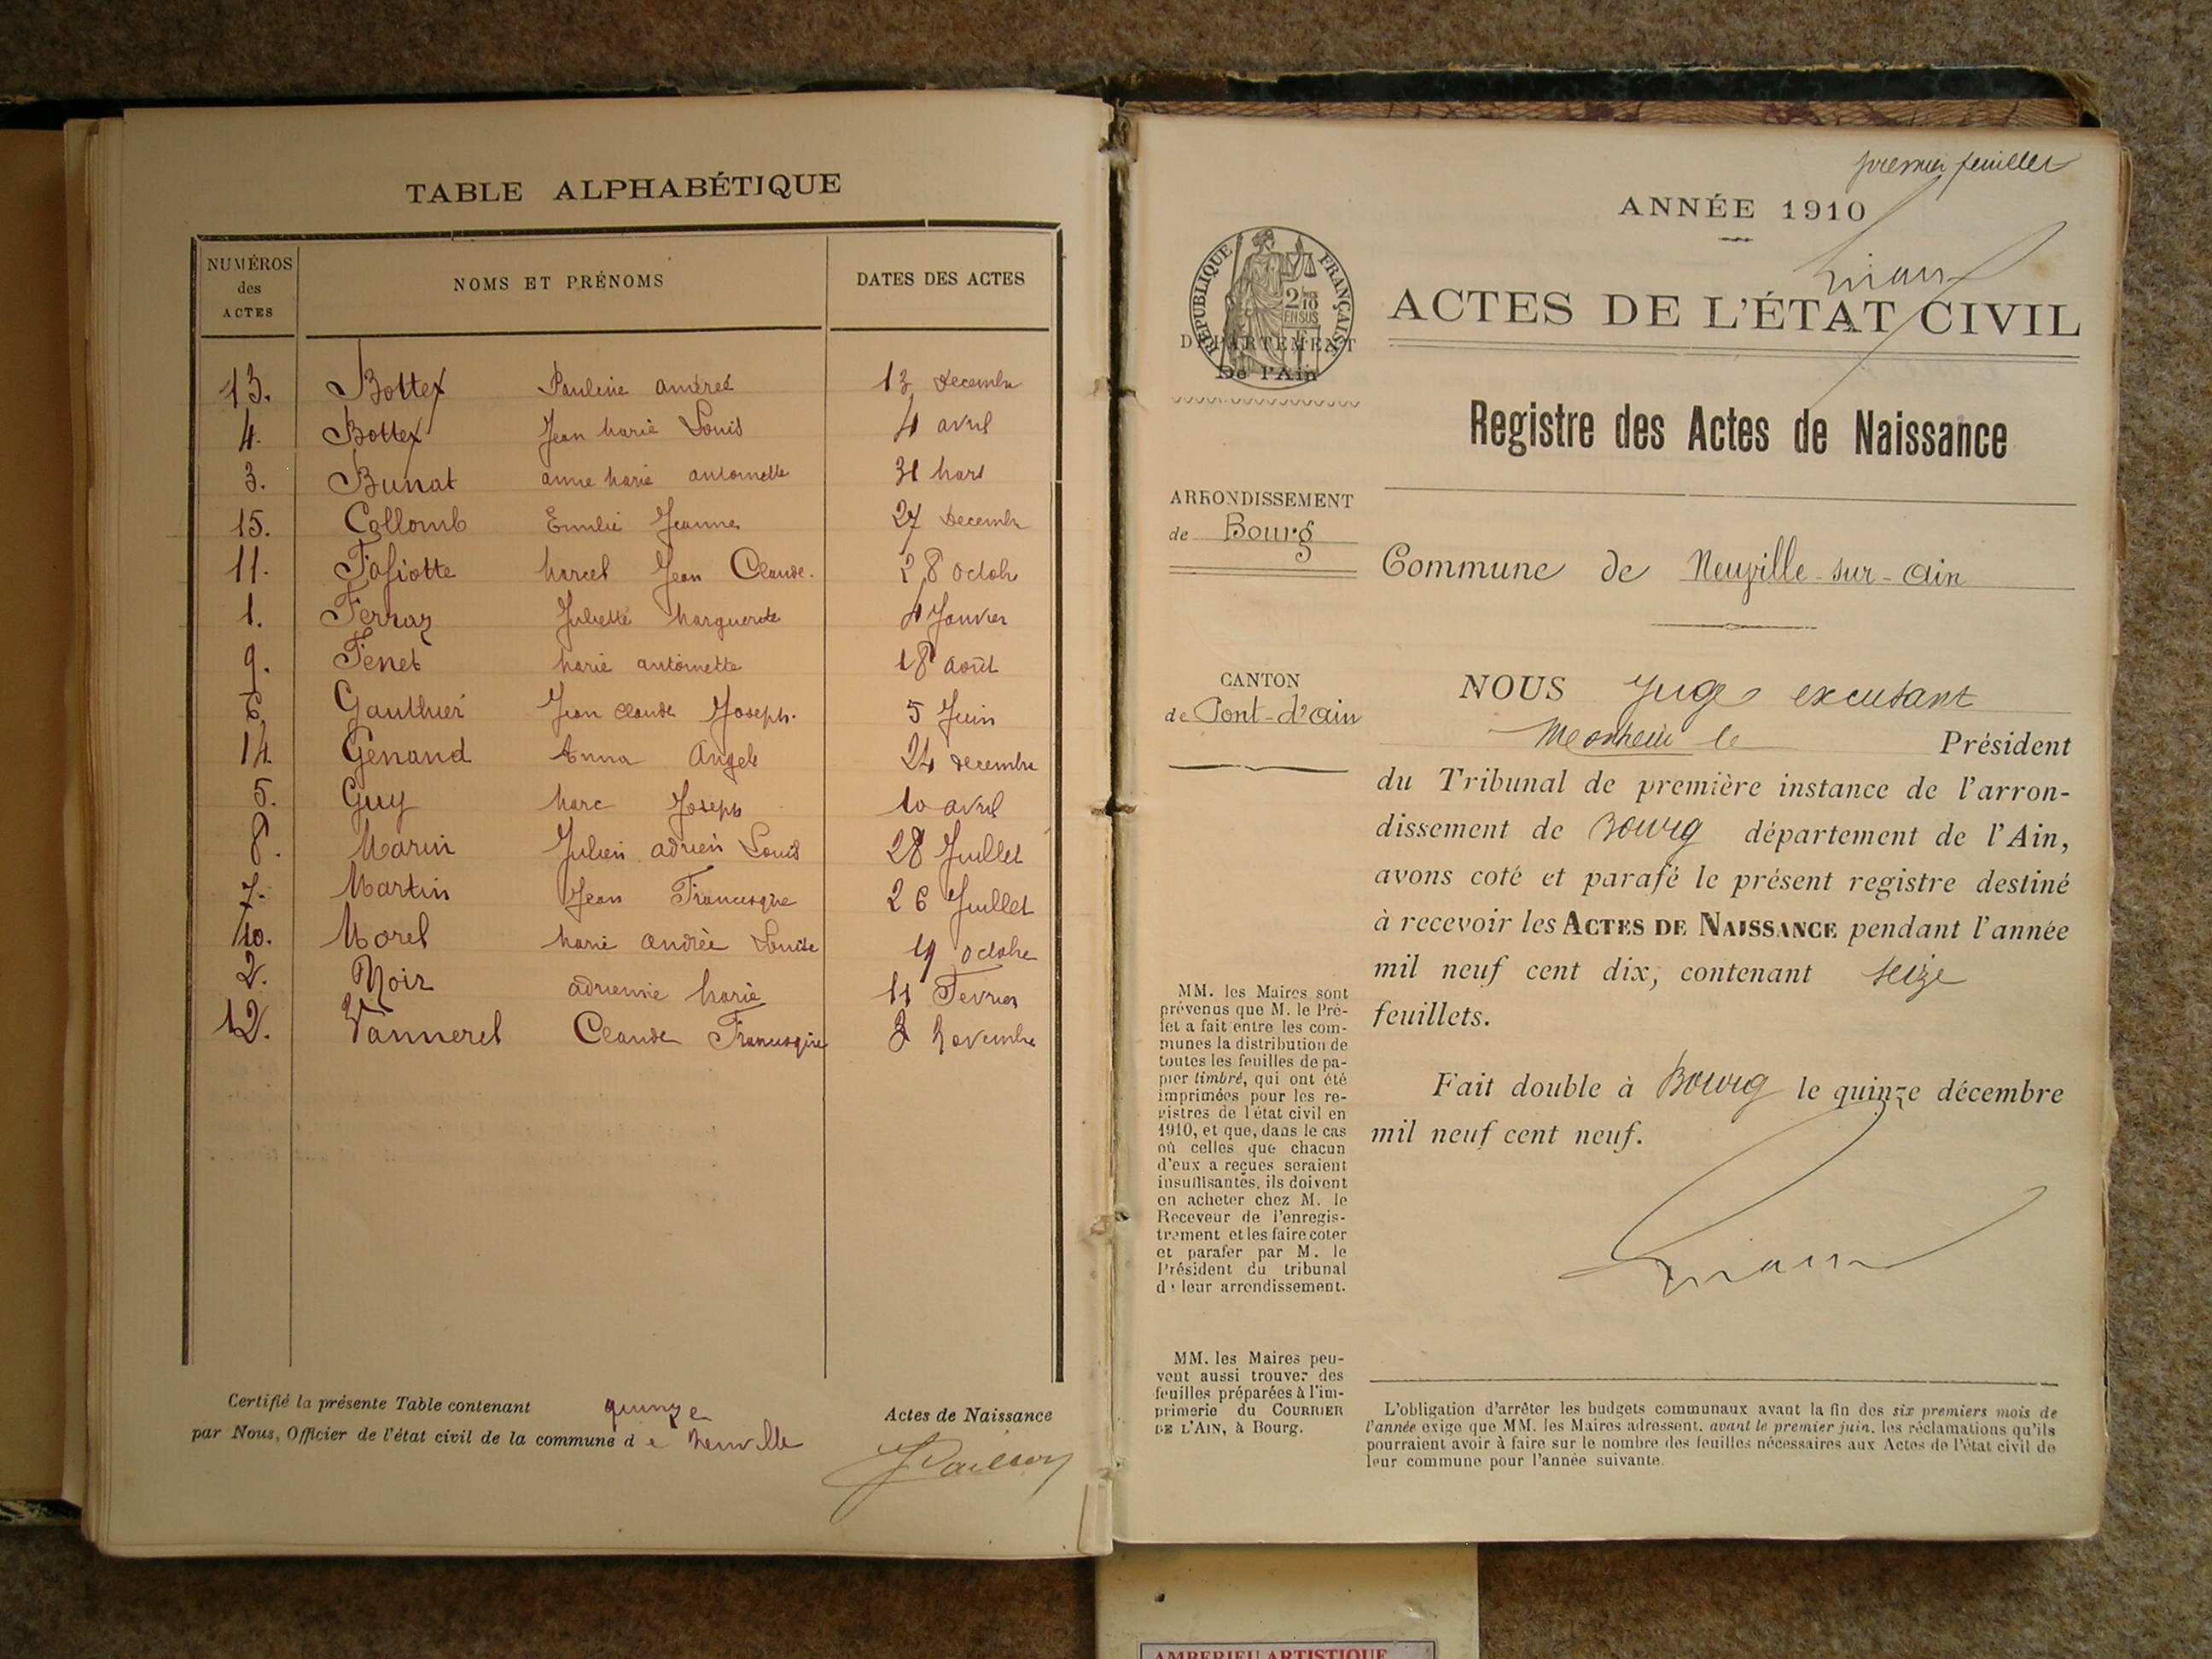 TABLE ALPHABÉTIQUE
NUMÉROS des ACTES NOMS ET PRÉNOMS DATES DES ACTES
13. Bottex Pauline andreé 13 decembre
4. Bottex Jean Marie Louis 4 avril
3. Bunat anne Marie antoinette 31 Mars
15. Collomb Emilie Jeanne 27 decembre
11. Marcel Jean Claude. 28 octobre
1. Ferraz Juliette Marguerite 4 Janvier
9. Fenet Marie antoinette 18 août
6. Gauthier Jean Claude Joseph. 5 Juin
14 Genand Anna Angele 24 decembre
5. Guy Marc Joseph 10 avril
8. Marin Julien adrien Louis 28 Juillet
7. Martin Jean Francisque 26 Juillet
10. Morel Marie andrée Louise octobre
2. Noir adrienne Marie 11 Fevrier
12. Vannerel Claude Francisque 8 Novembre
Certifié la présente Table contenant quinze Actes de Naissance
par Nous, Officier de l'état civil de la commune de Neuville
premier feuillet
ANNÉE 1910
RÉPUBLIQUE FRANÇAISE
2/10 EN SUS
DÉPARTEMENT
De l'Ain
ACTES DE L'ÉTAT CIVIL
Registre des Actes de Naissance
ARRONDISSEMENT
de Bourg
Commune de Neuville-sur-Ain
CANTON
de Pont-d'Ain
NOUS Juge excusant
le Président
du Tribunal de première instance de l'arron-
dissement de Bourg département de l'Ain,
avons coté et parafé le présent registre destiné
à recevoir les ACTES DE NAISSANCE pendant l'année
mil neuf cent dix, contenant seize
feuillets.
Fait double à Bourg le quinze décembre
mil neuf cent neuf.
MM. les Maires sont
prévenus que M. le Pré-
fet a fait entre les com-
munes la distribution de
toutes les feuilles de pa-
pier timbré, qui ont été
imprimées pour les re-
gistres de l'état civil en
1910, et que, dans le cas
où celles que chacun
d'eux a reçues seraient
insuffisantes, ils doivent
en acheter chez M. le
Receveur de l'enregis-
trement et les faire coter
et parafer par M. le
Président du tribunal
de leur arrondissement.
MM. les Maires peu-
vent aussi trouver des
feuilles préparées à l'im-
primerie du COURRIER
DE L'AIN, à Bourg.
L'obligation d'arrêter les budgets communaux avant la fin des six premiers mois de
l'année exige que MM. les Maires adressent, avant le premier juin, les réclamations qu'ils
pourraient avoir à faire sur le nombre des feuilles nécessaires aux Actes de l'état civil de
leur commune pour l'année suivante.
AMBERIEU ARTISTIQUE